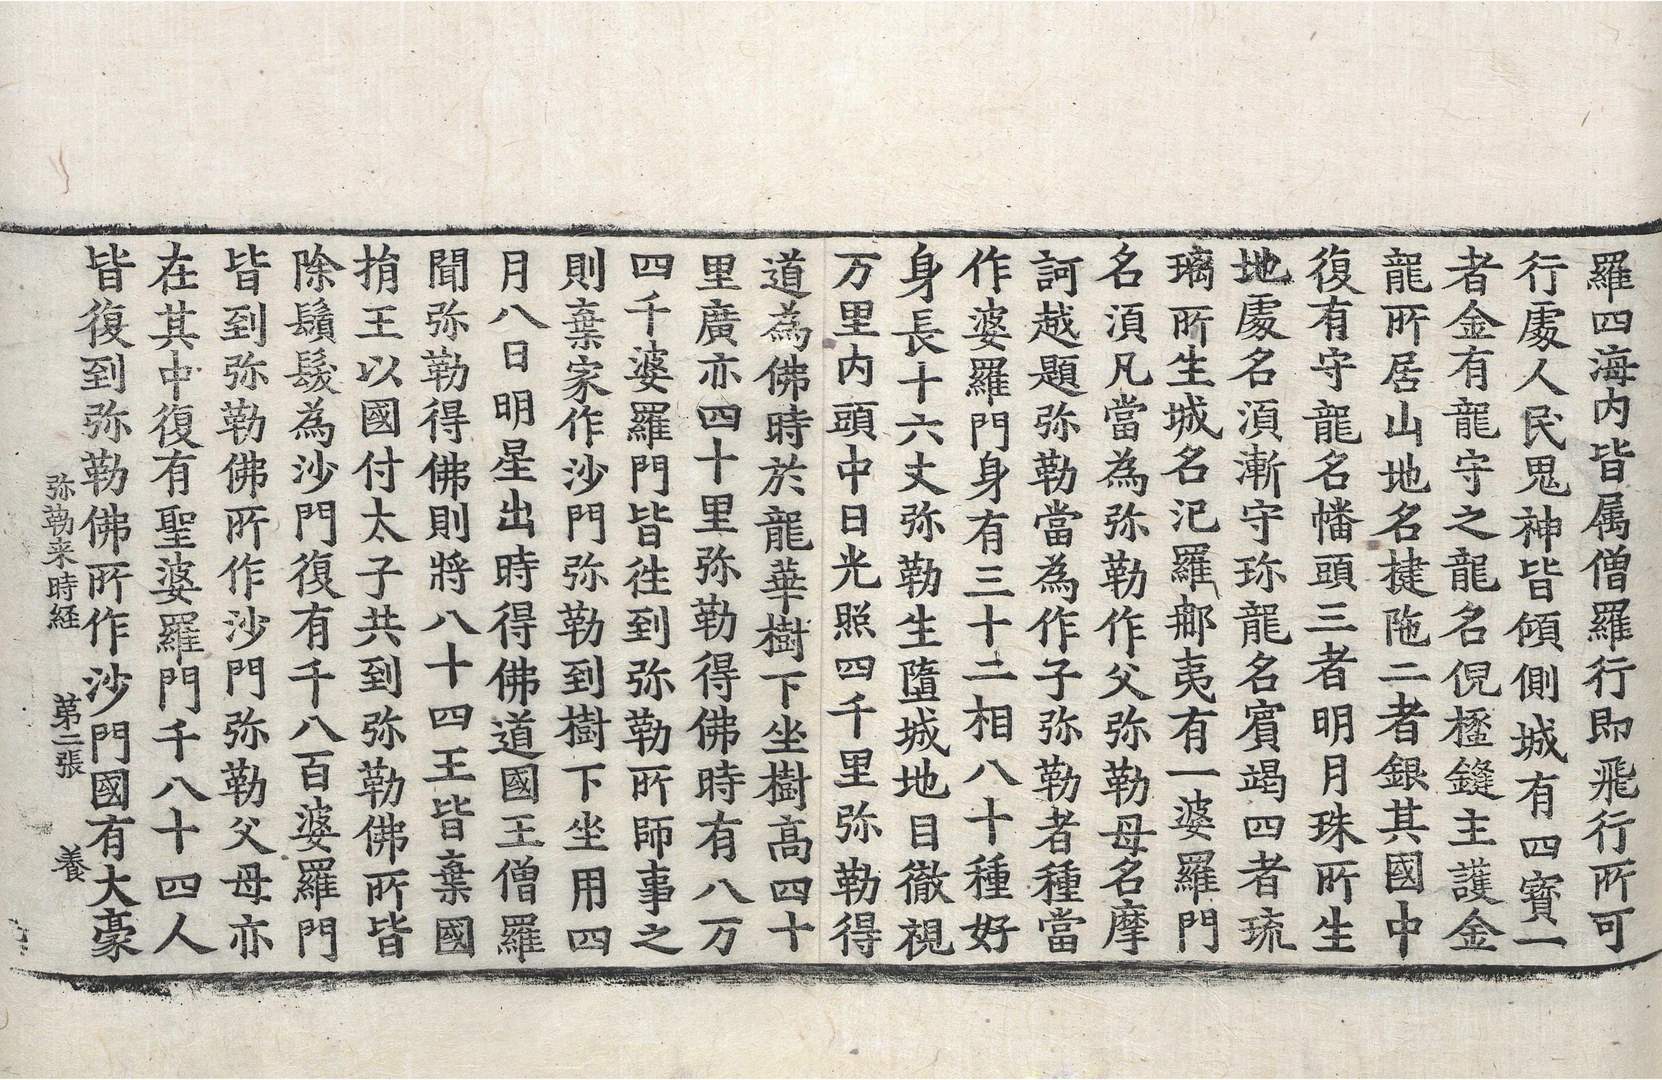 羅四海内皆属僧羅行即飛行所可
行處人民鬼神皆傾側城有四寶一
者金有龍守之龍名倪𣜰鑓主護金
龍所居山地名揵陁二者銀其國中
復有守龍名幡頭三者明月珠所生
地處名湏漸守珎龍名賔竭四者琉
璃所生城名氾羅那夷有一婆羅門
名湏凡當為弥勒作父弥勒母名摩
訶越題弥勒當為作子弥勒者種當
作婆羅門身有三十二相八十種好
身長十六丈弥勒生墮城地目徹視
万里内頭中日光照四千里弥勒得
道為佛時於龍華樹下坐樹高四十
里廣亦四十里弥勒得佛時有八万
四千婆羅門皆徃到弥勒所師事之
則棄家作沙門弥勒到樹下坐用四
月八日明星出時得佛道國王僧羅
聞弥勒得佛則將八十四王皆棄國
捐王以國付太子共到弥勒佛所皆
除鬚髮為沙門復有千八百婆羅門
皆到弥勒佛所作沙門弥勒父母亦
在其中復有聖婆羅門千八十四人
皆復到弥勒佛所作沙門國有大豪
弥勒来時経 第二張 養